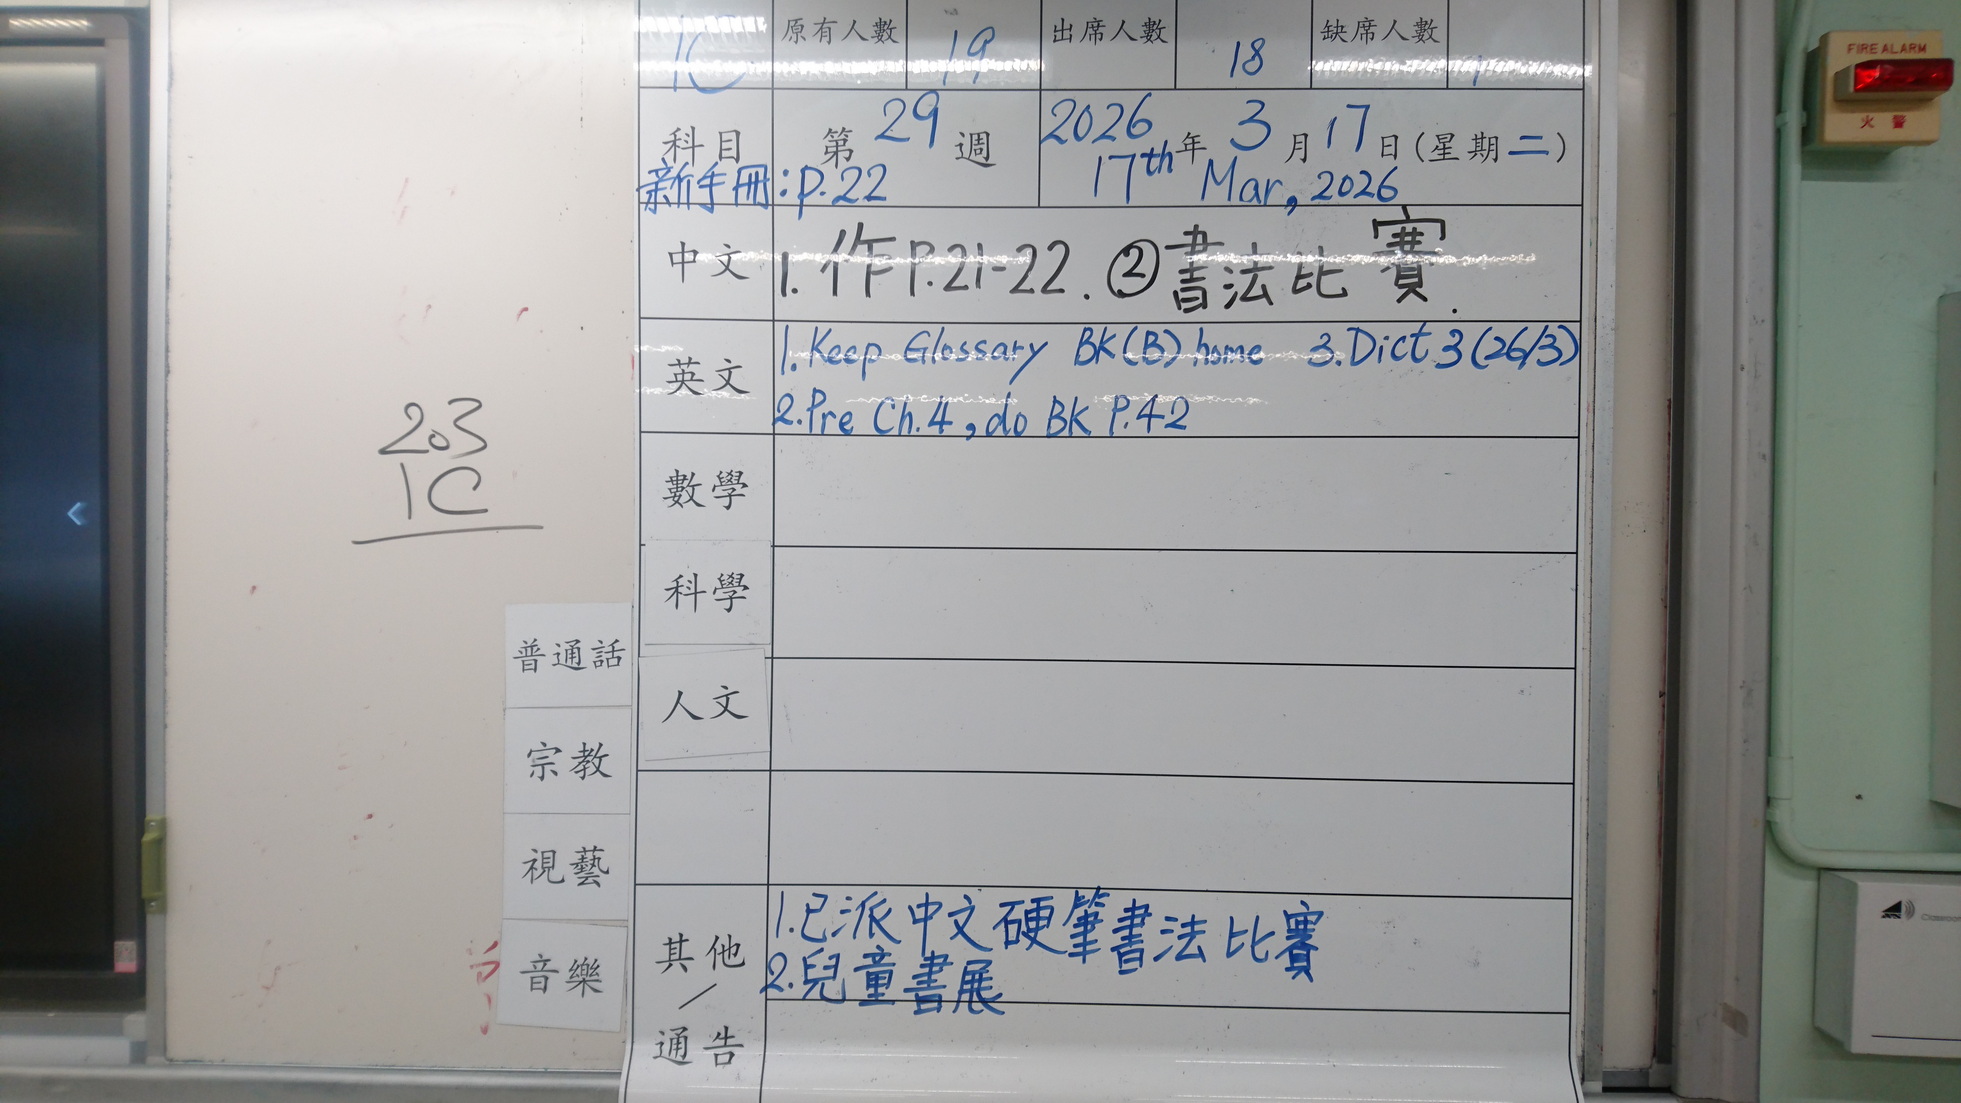 1C 原有人數 19 出席人數 18 缺席人數 1
科目 第29週 2026年3月17日(星期二)
新手冊:p.22 17th Mar, 2026
中文 1. 作P.21-22. ②書法比賽.
英文 1.Keep Glossary BK(B) home 3.Dict 3(26/3)
2.Pre Ch.4, do BK P.42
數學
科學
人文
其他/通告 1.已派中文硬筆書法比賽
2.兒童書展
203
1C
普通話
宗教
視藝
音樂
FIRE ALARM
火警